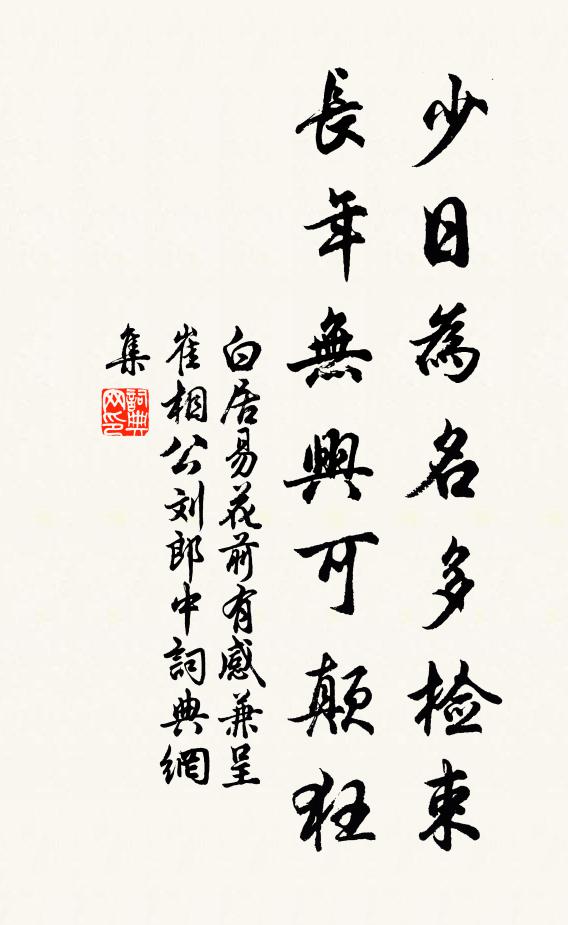 少日為名多檢束
長年無興可顛狂
白居易花前有感兼呈
崔相公刘郎中詞典網
集
詞典
网印